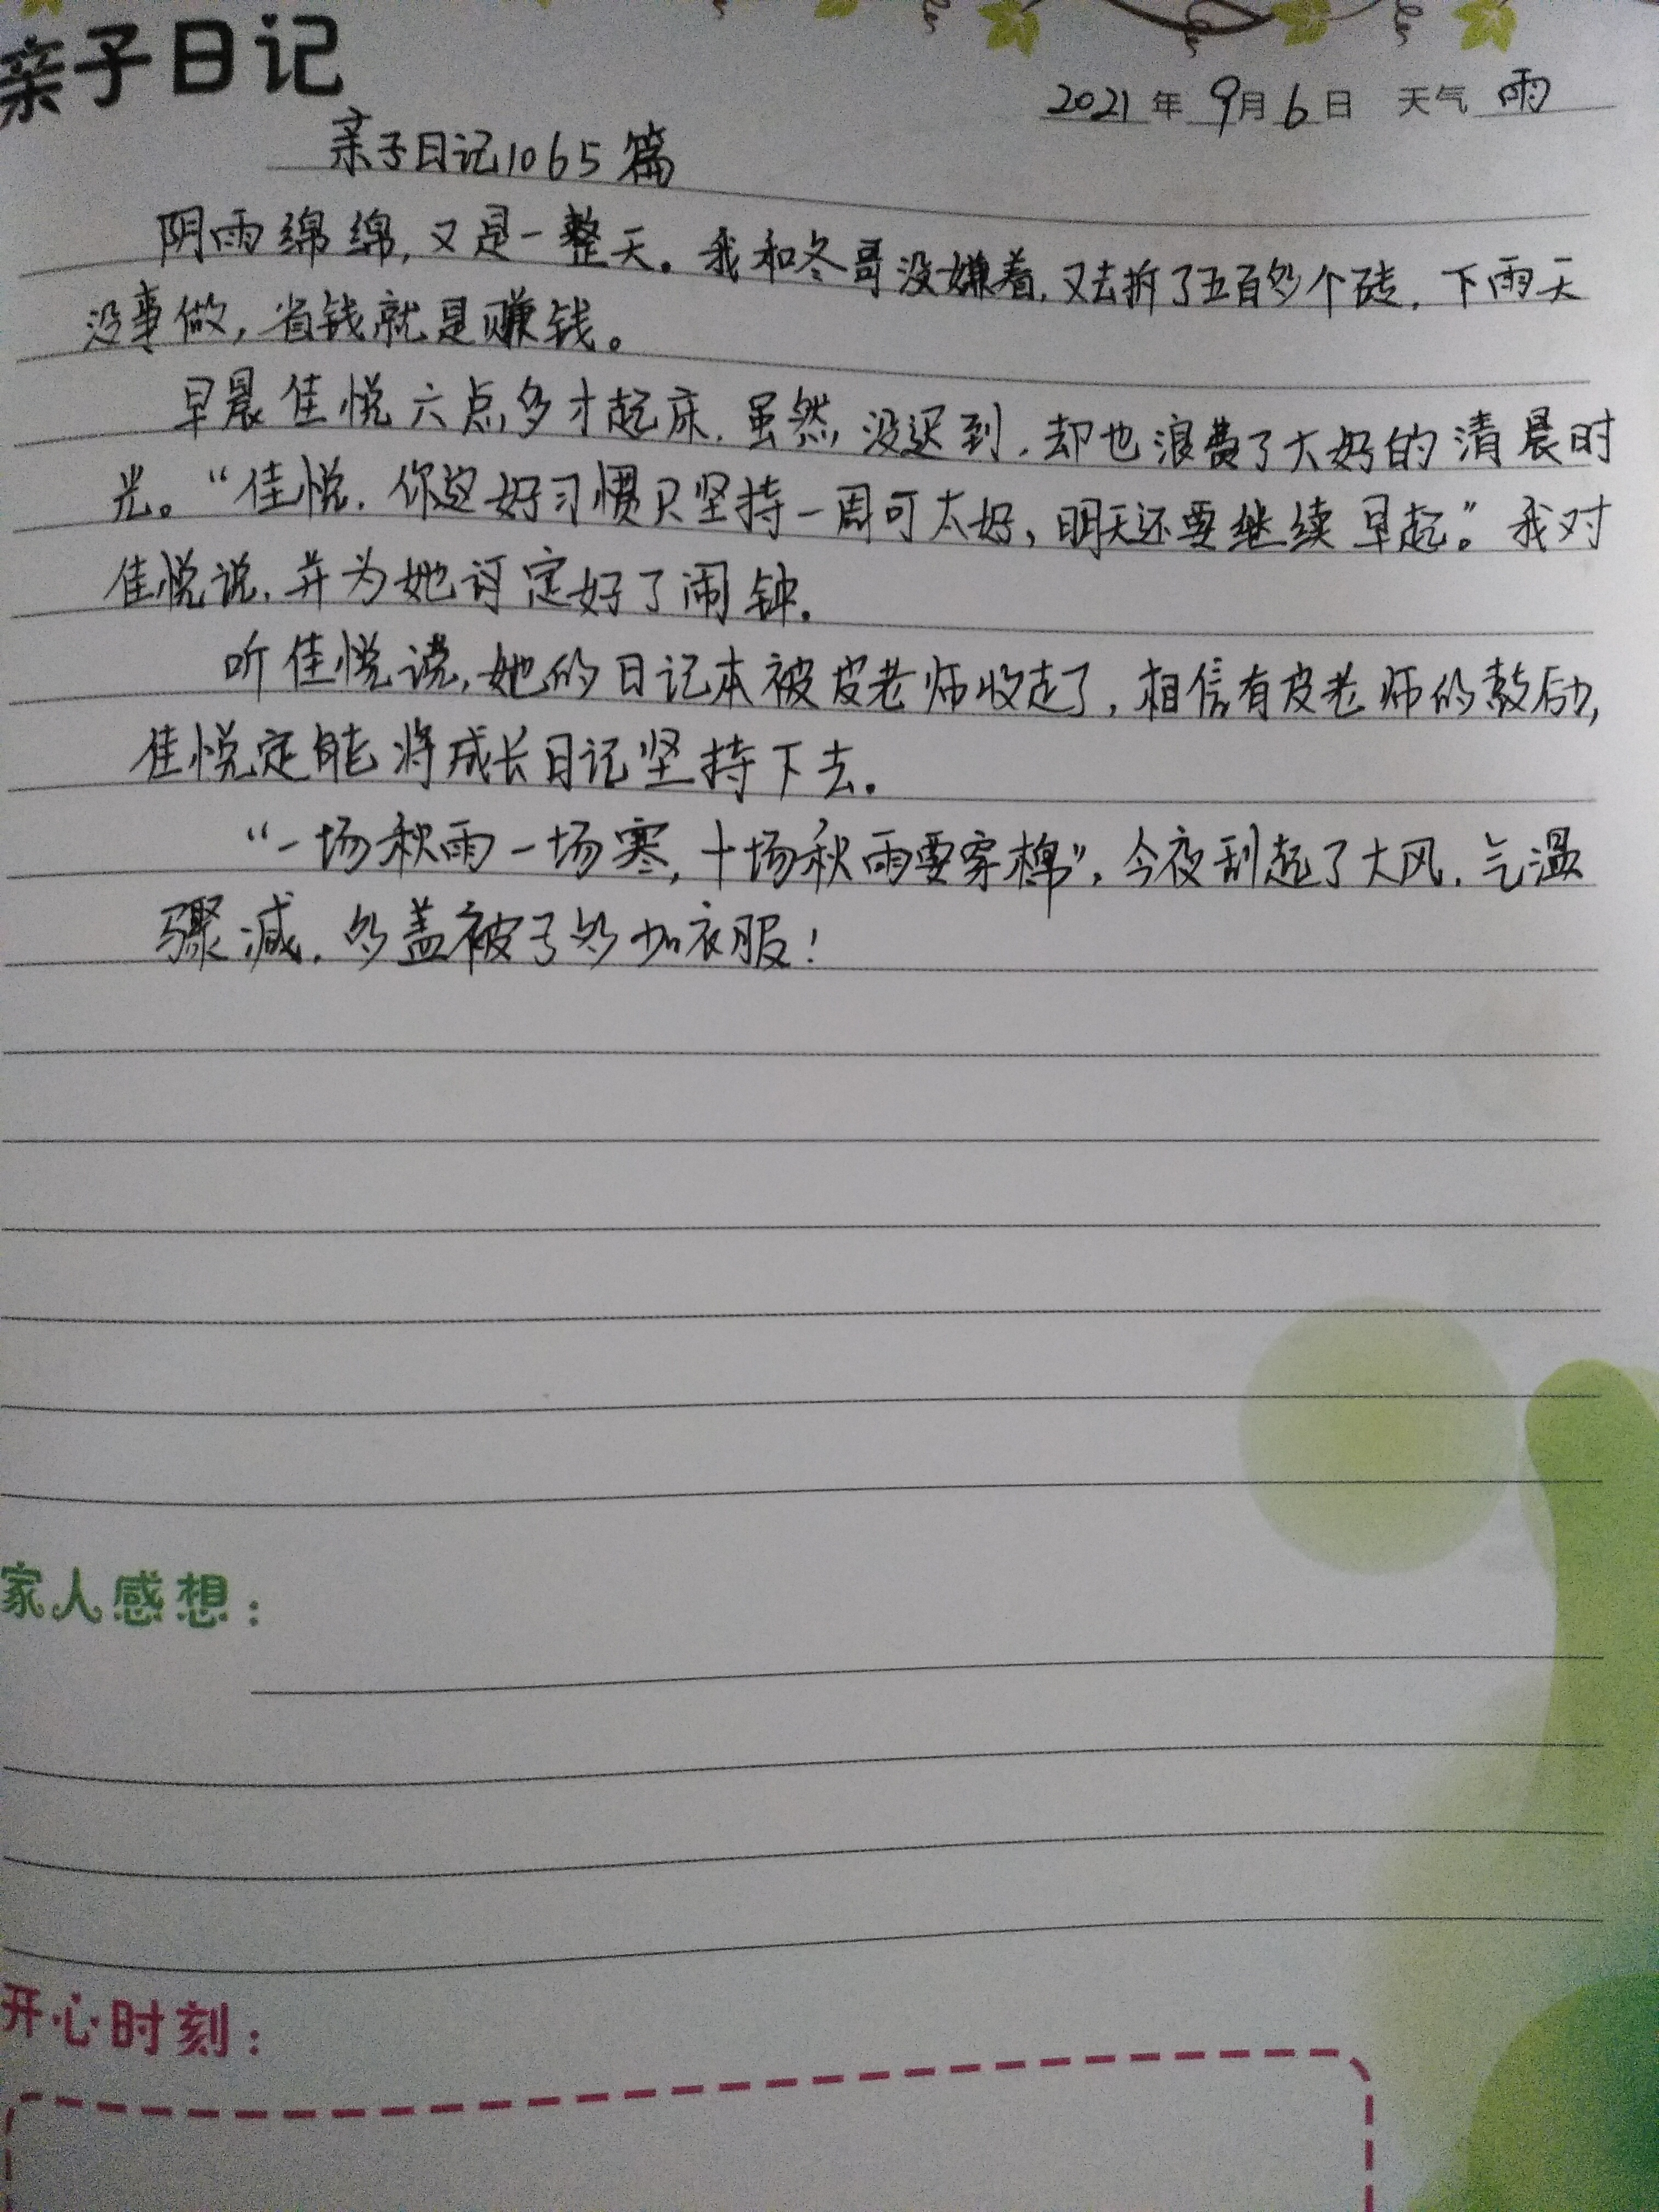 亲子日记
2021年9月6日 天气 雨
亲子日记1065篇
阴雨绵绵,又是一整天。我和冬哥没嫌着,又去拆了五百多个砖,下雨天
没事做,省钱就是赚钱。
早晨佳悦六点多才起床,虽然没迟到,却也浪费了大好的清晨时
光。“佳悦,你这好习惯只坚持一周可太好,明天还要继续早起。”我对
佳悦说,并为她订定好了闹钟。
听佳悦说,她的日记本被皮老师收走了,相信有皮老师的鼓励,
佳悦定能将成长日记坚持下去。
“一场秋雨一场寒,十场秋雨要穿棉”,今夜刮起了大风,气温
骤减,多盖被子多加衣服!
家人感想:
开心时刻: